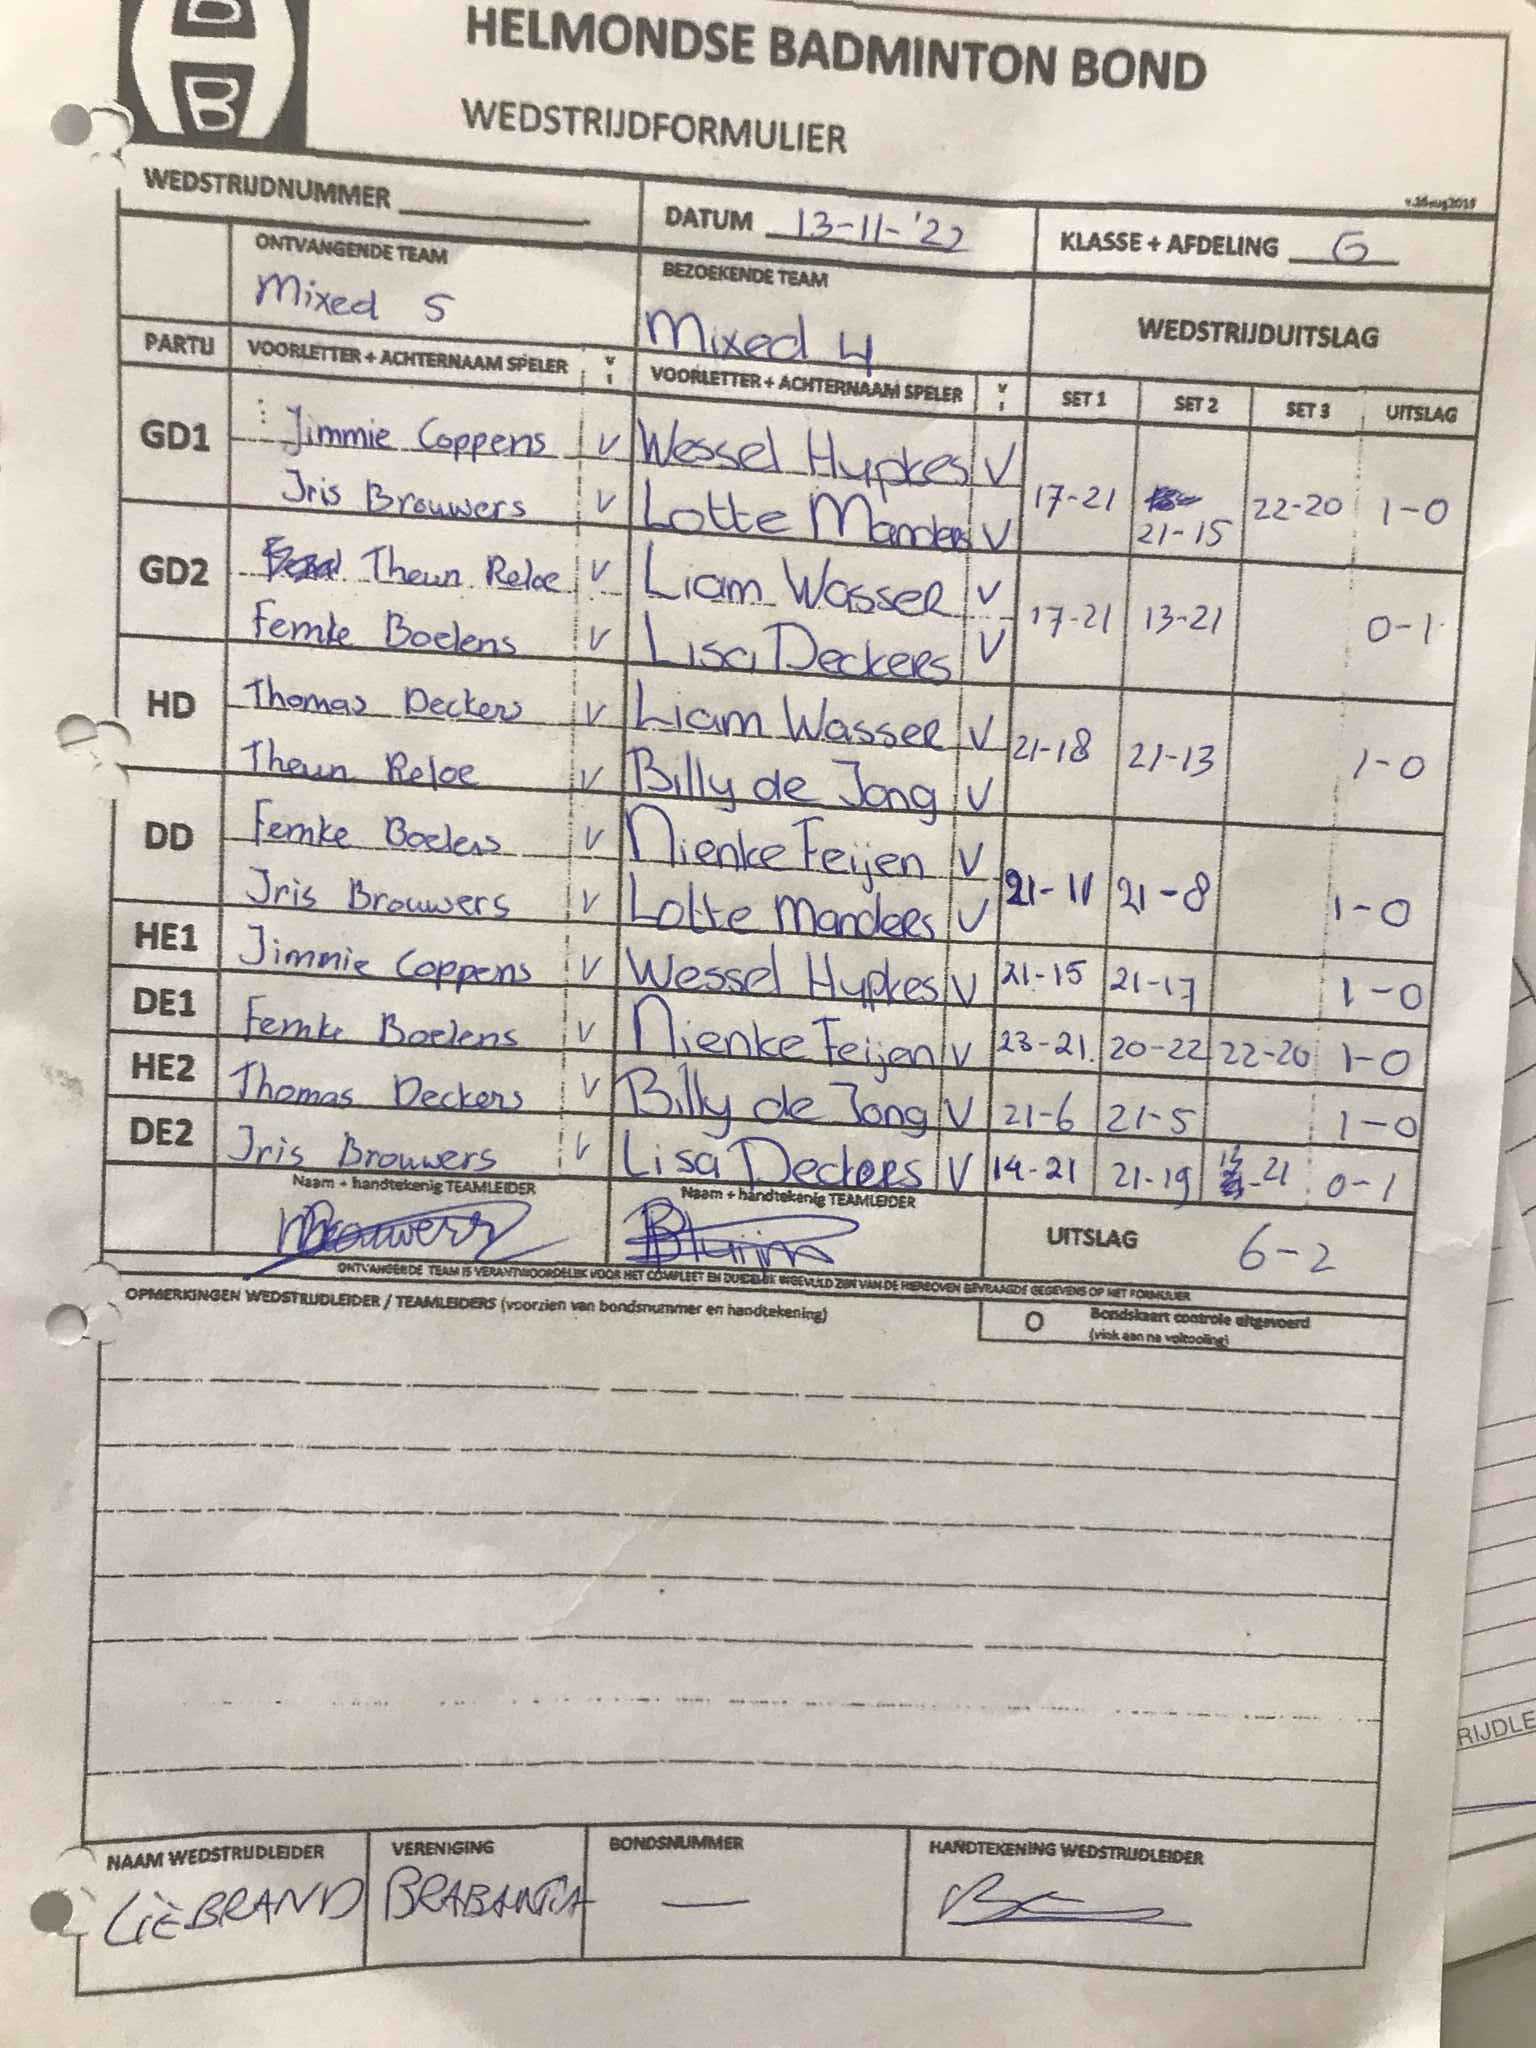 HELMONDSE BADMINTON BOND
WEDSTRIJDFORMULIER
v.26aug2015
WEDSTRIJDNUMMER DATUM 13-11-'22 KLASSE + AFDELING G
ONTVANGENDE TEAM BEZOEKENDE TEAM WEDSTRIJDUITSLAG
Mixed 5 Mixed 4
PARTIJ VOORLETTER + ACHTERNAAM SPELER V I VOORLETTER + ACHTERNAAM SPELER V I SET 1 SET 2 SET 3 UITSLAG
GD1 Jimmie Coppens V Wessel Hypkes V 17-21 21-15 22-20 1-0
Iris Brouwers V Lotte Manders V
GD2 Theun Reloe V Liam Wasser V 17-21 13-21 0-1
Femke Boelens V Lisa Deckers V
HD Thomas Deckers V Liam Wasser V 21-18 21-13 1-0
Theun Reloe V Billy de Jong V
DD Femke Boelens V Nienke Feijen V 21-11 21-8 1-0
Iris Brouwers V Lotte Manders V
HE1 Jimmie Coppens V Wessel Hypkes V 21-15 21-17 1-0
DE1 Femke Boelens V Nienke Feijen V 23-21 20-22 22-20 1-0
HE2 Thomas Deckers V Billy de Jong V 21-6 21-5 1-0
DE2 Iris Brouwers V Lisa Deckers V 14-21 21-19 -21 0-1
Naam + handtekenig TEAMLEIDER Naam + handtekenig TEAMLEIDER
UITSLAG 6-2
ONTVANGENDE TEAM IS VERANTWOORDELIJK VOOR HET COMPLEET EN DUIDELIJK INGEVULD ZIJN VAN DE HIERBOVEN GEVRAAGDE GEGEVENS OP HET FORMULIER
OPMERKINGEN WEDSTRIJDLEIDER / TEAMLEIDERS (voorzien van bondsnummer en handtekening)
O Bondskaart controle uitgevoerd
(vink aan na voltooiing)
NAAM WEDSTRIJDLEIDER VERENIGING BONDSNUMMER HANDTEKENING WEDSTRIJDLEIDER
LIËBRAND BRABANTIA —
RIJDLE